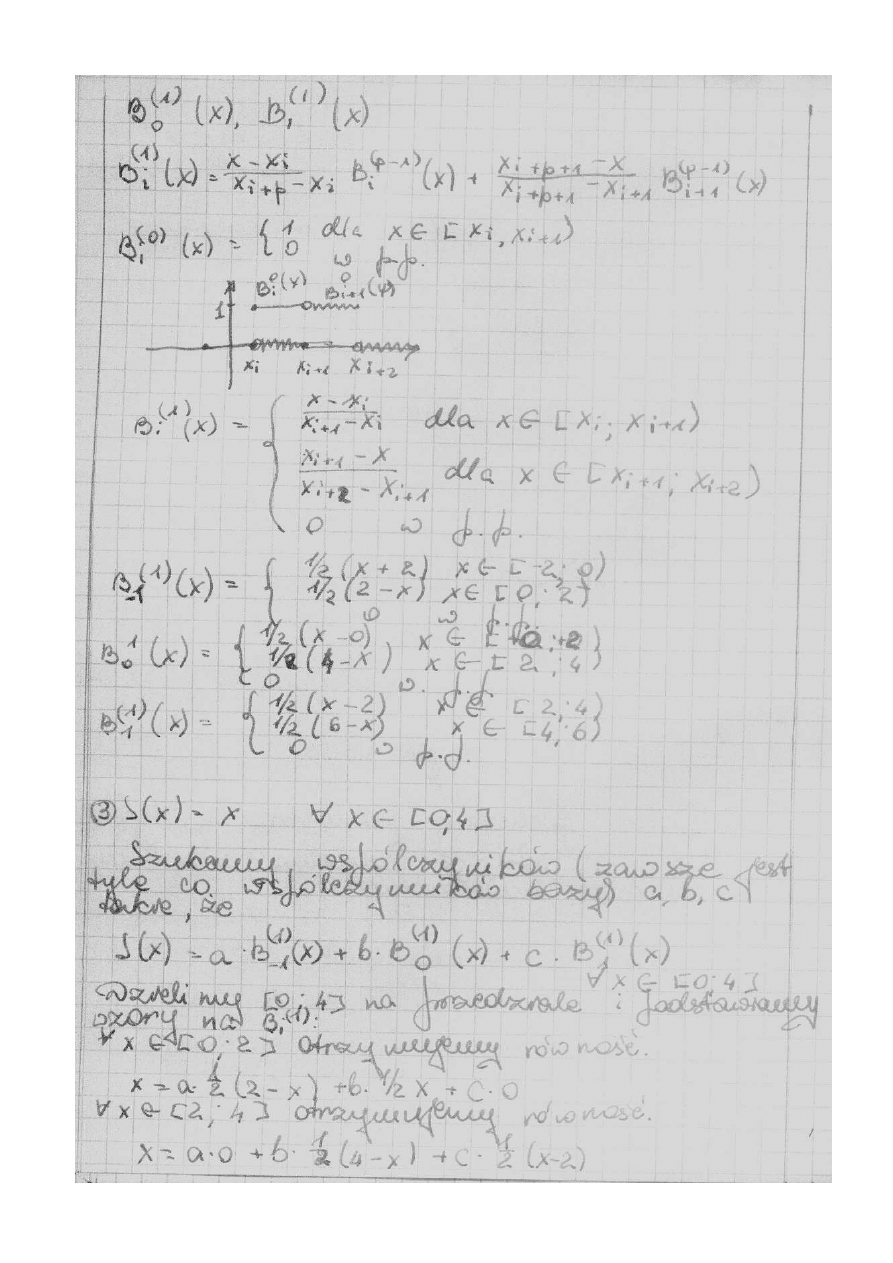 B₀⁽¹⁾(x), B₁⁽¹⁾(x)
Bᵢ⁽¹⁾(x) = (x - xᵢ)/(xᵢ₊ₚ - xᵢ) Bᵢ⁽ᵖ⁻¹⁾(x) + (xᵢ₊ₚ₊₁ - x)/(xᵢ₊ₚ₊₁ - xᵢ₊₁) Bᵢ₊₁⁽ᵖ⁻¹⁾(x)
Bᵢ⁽⁰⁾(x) = { 1 dla x ∈ [xᵢ, xᵢ₊₁)
0 w p.p.
Bᵢ⁰(x) Bᵢ₊₁⁰(φ)
1
xᵢ xᵢ₊₁ xᵢ₊₂
Bᵢ⁽¹⁾(x) = { (x - xᵢ)/(xᵢ₊₁ - xᵢ) dla x ∈ [xᵢ; xᵢ₊₁)
(xᵢ₊₁ - x)/(xᵢ₊₂ - xᵢ₊₁) dla x ∈ [xᵢ₊₁; xᵢ₊₂)
0 w p.p.
B₋₁⁽¹⁾(x) = { 1/2 (x + 2) x ∈ [-2; 0)
1/2 (2 - x) x ∈ [0; 2)
0 w p.p.
B₀¹(x) = { 1/2 (x - 0) x ∈ [0; 2)
1/2 (4 - x) x ∈ [2; 4)
0 w. p.p.
B₋₁⁽¹⁾(x) = { 1/2 (x - 2) x ∈ [2; 4)
1/2 (6 - x) x ∈ [4; 6)
0 w p.p.
③ S(x) = x ∀ x ∈ [0,4]
Szukamy współczyników (zawsze jest
tyle co współczynników bazy) a, b, c
takie, że
S(x) = a · B₋₁⁽¹⁾(x) + b · B₀⁽¹⁾(x) + c · B₁⁽¹⁾(x)
∀ x ∈ [0; 4]
Dzielimy [0; 4] na przedziale i podstawiamy
wzory na Bᵢ⁽¹⁾:
∀ x ∈ [0; 2] otrzymujemy równość.
x = a · 1/2 (2 - x) + b · 1/2 x + c · 0
∀ x ∈ [2; 4] otrzymujemy równość.
x = a · 0 + b · 1/2 (4 - x) + c · 1/2 (x - 2)